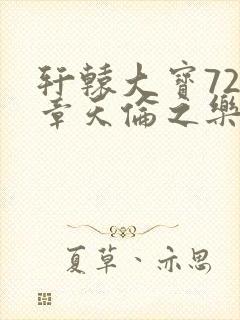 轩辕大寶72
章天倫之樂
夏草、亦思